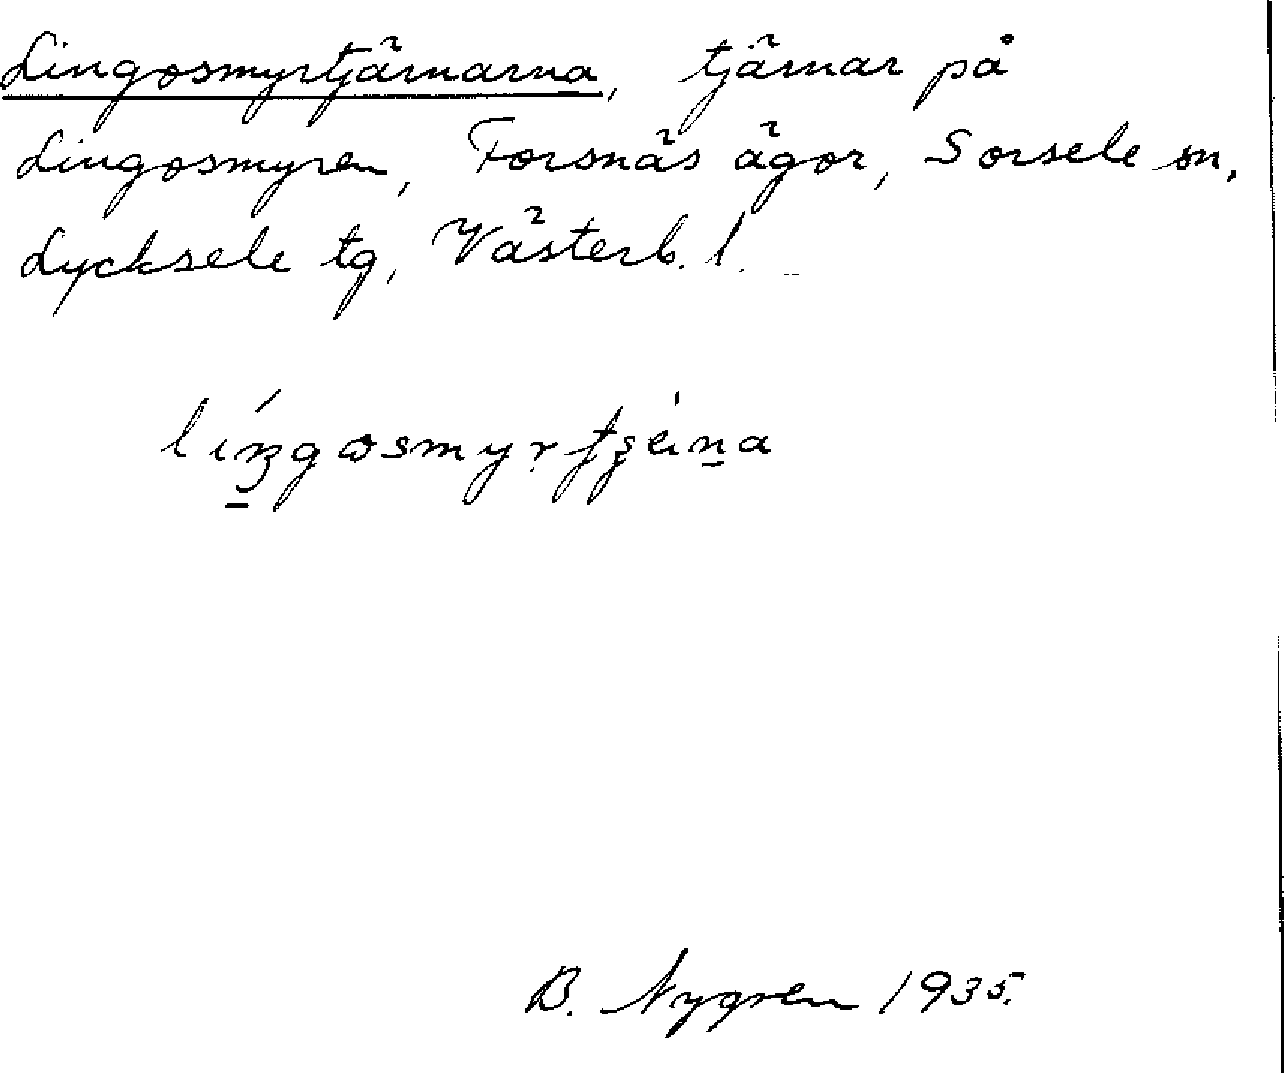 Lingosmyrtjärnarna, tjärnar på
Lingosmyren, Forsnäs ägor, Sorsele sn,
Lycksele tg, Västerb. l.
B. Nygren 1935.